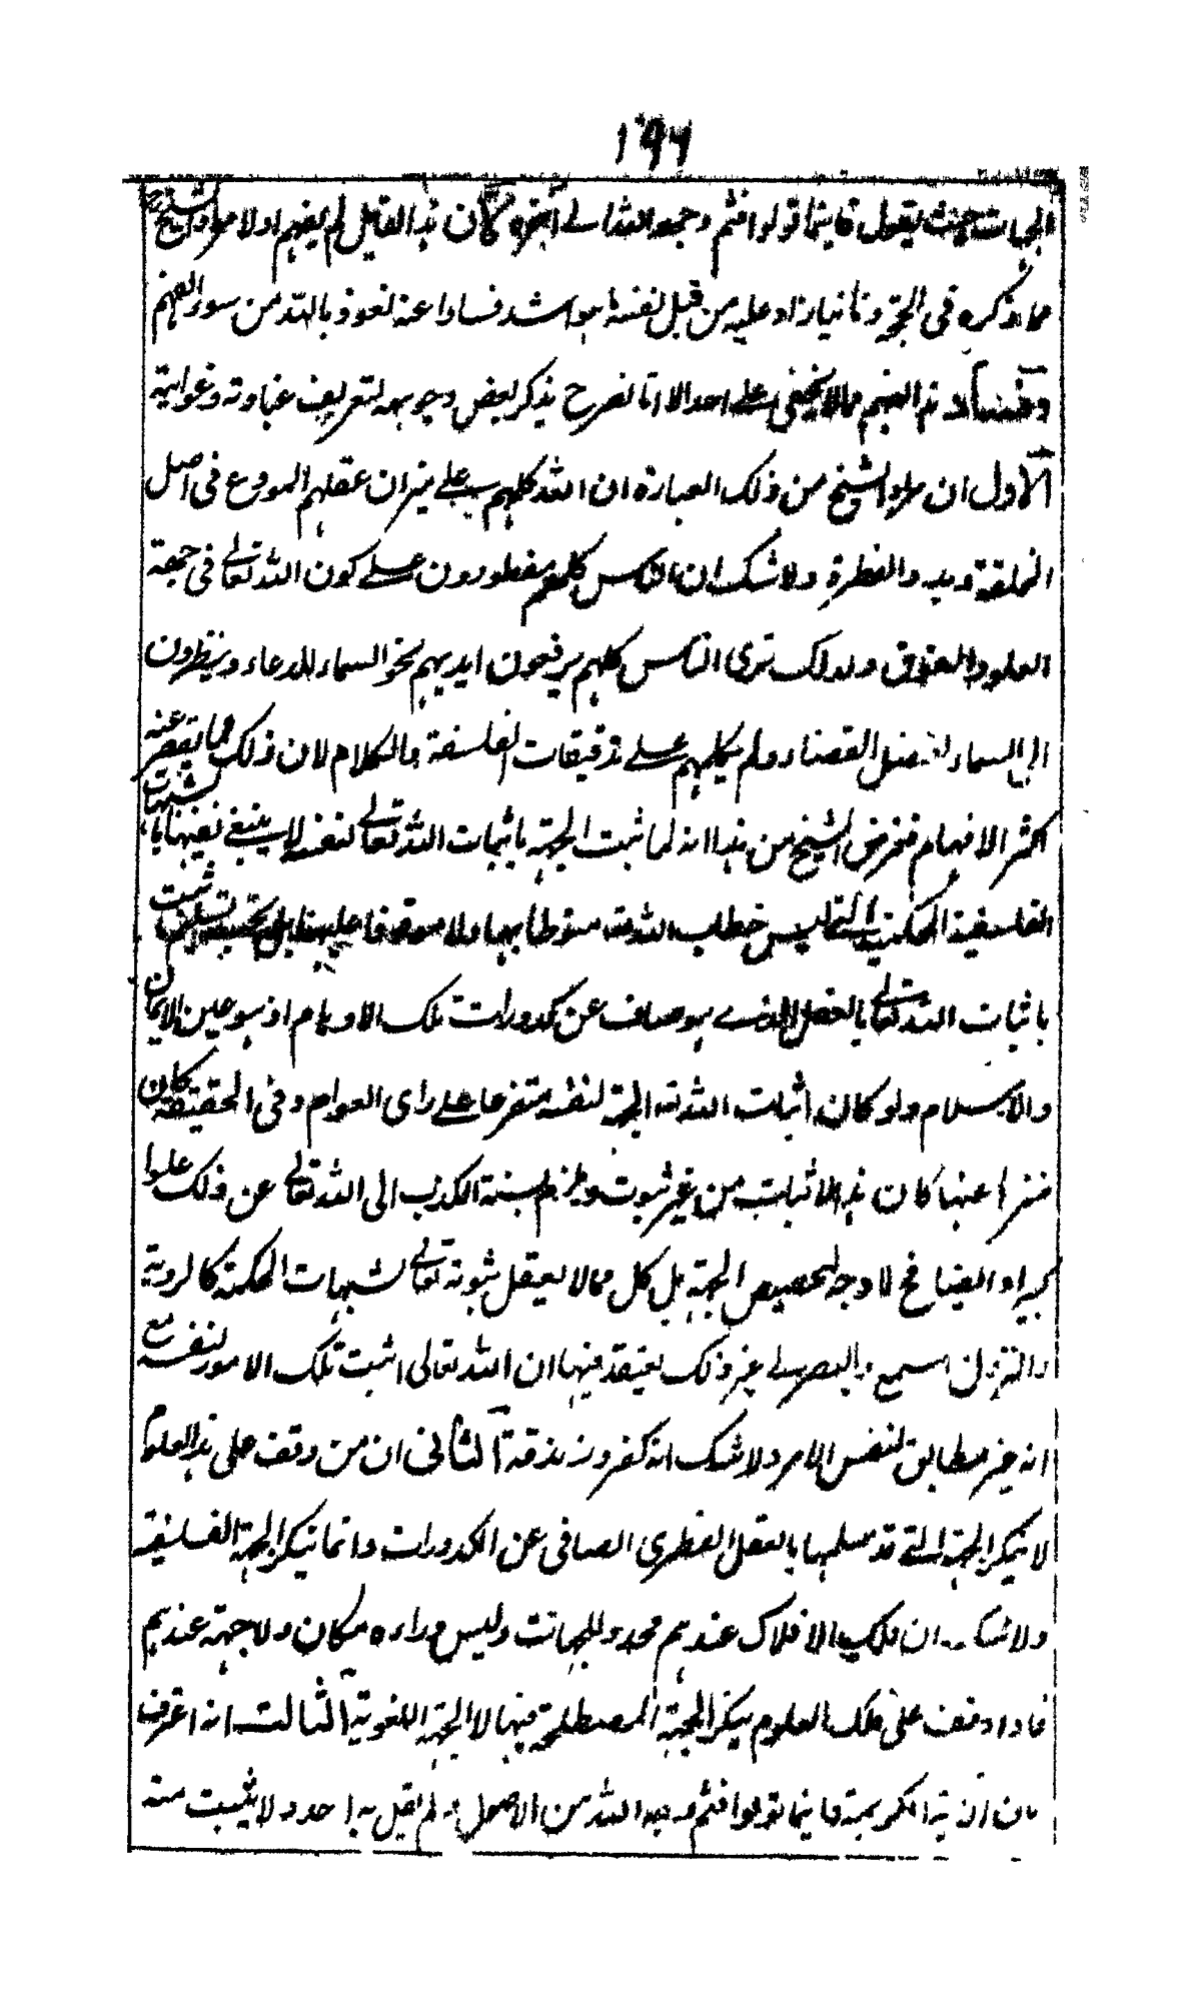 ١٩٦
الجهات حيث يقول فاينما تولوا فثم وجه الله الى آخره فكان هذا القايل لم يفهم اولا مراد الشيخ
مما ذكره في الحجة وثانيا زاد عليه من قبل نفسه ما هو اشد فسادا عنه نعوذ بالله من سوء الفهم
وفساد هذا الفهم مما لا يخفى على احد الا انا نصرح بذكر بعض وجوهه لتعريف غباوته وغوايته
الاول ان مراد الشيخ من ذلك العبارة ان الله كلهم على ميزان عقلهم المودع في اصل
الخلقة والفطرة ولا شك ان الناس كلهم مفطورون على كون الله تعالى في جهة
العلو والفوق ولذلك ترى الناس كلهم يرفعون ايديهم نحو السماء للدعاء وينظرون
الى السماء لفصل القضاء ولم يكلهم على تدقيقات الفلسفة والكلام لان ذلك مما يقصر عنه
اكثر الافهام فغرض الشيخ من هذا انه لما ثبت الجهة باثبات الله تعالى لنفسه لا ينبغي نفيها بالشبهات
الفلسفية الحكمية اذ ليس خطاب الله تعه منوطا بها ولا موقوفا عليها بل يجب تسليم ما ثبت
باثبات الله تعالى بالعقل الذي هو صاف عن كدورات تلك الاوهام اذ هو عين الايمان
والاسلام ولو كان اثبات الله تعه الجهة لنفسه متفرعا على راى العوام وفي الحقيقة كان
منزها عنها كان هذا الاثبات من غير ثبوت ويلزم نسبة الكذب الى الله تعالى عن ذلك علوا
كبيرا وايضا فح لا وجه لتخصيص الجهة بل كل ما لا يعقل ثبوته تعالى لشبهات الحكمة كالروية
والنزول والسمع والبصر الى غير ذلك يعتقد فيها ان الله تعالى اثبت تلك الامور لنفسه مع
انه غير مطابق لنفس الامر ولا شك انه كفر وزندقة الثانى ان من وقف على هذه العلوم
لا ينكر الجهة التي قد سلمها بالعقل الفطري الصافي عن الكدورات وانما ينكر الجهة الفلسفية
ولا شك ان فلك الافلاك عندهم محدد للجهات وليس وراءه مكان ولا جهة عندهم
فاذا وقف على تلك العلوم ينكر الجهة المصطلحة فيها لا الجهة اللغوية الثالث انه اعترف
بان الآية الكريمة فاينما تولوا فثم وجه الله من الاصول ولم يقل به احد ولا يثبت منه